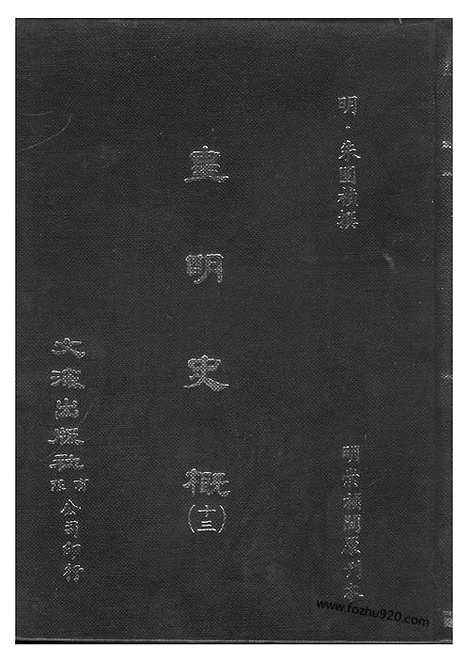 明·朱國禎撰
明崇禎間原刊本
皇明史概
(十三)
文海出版社有限公司印行
www.fozhu920.com